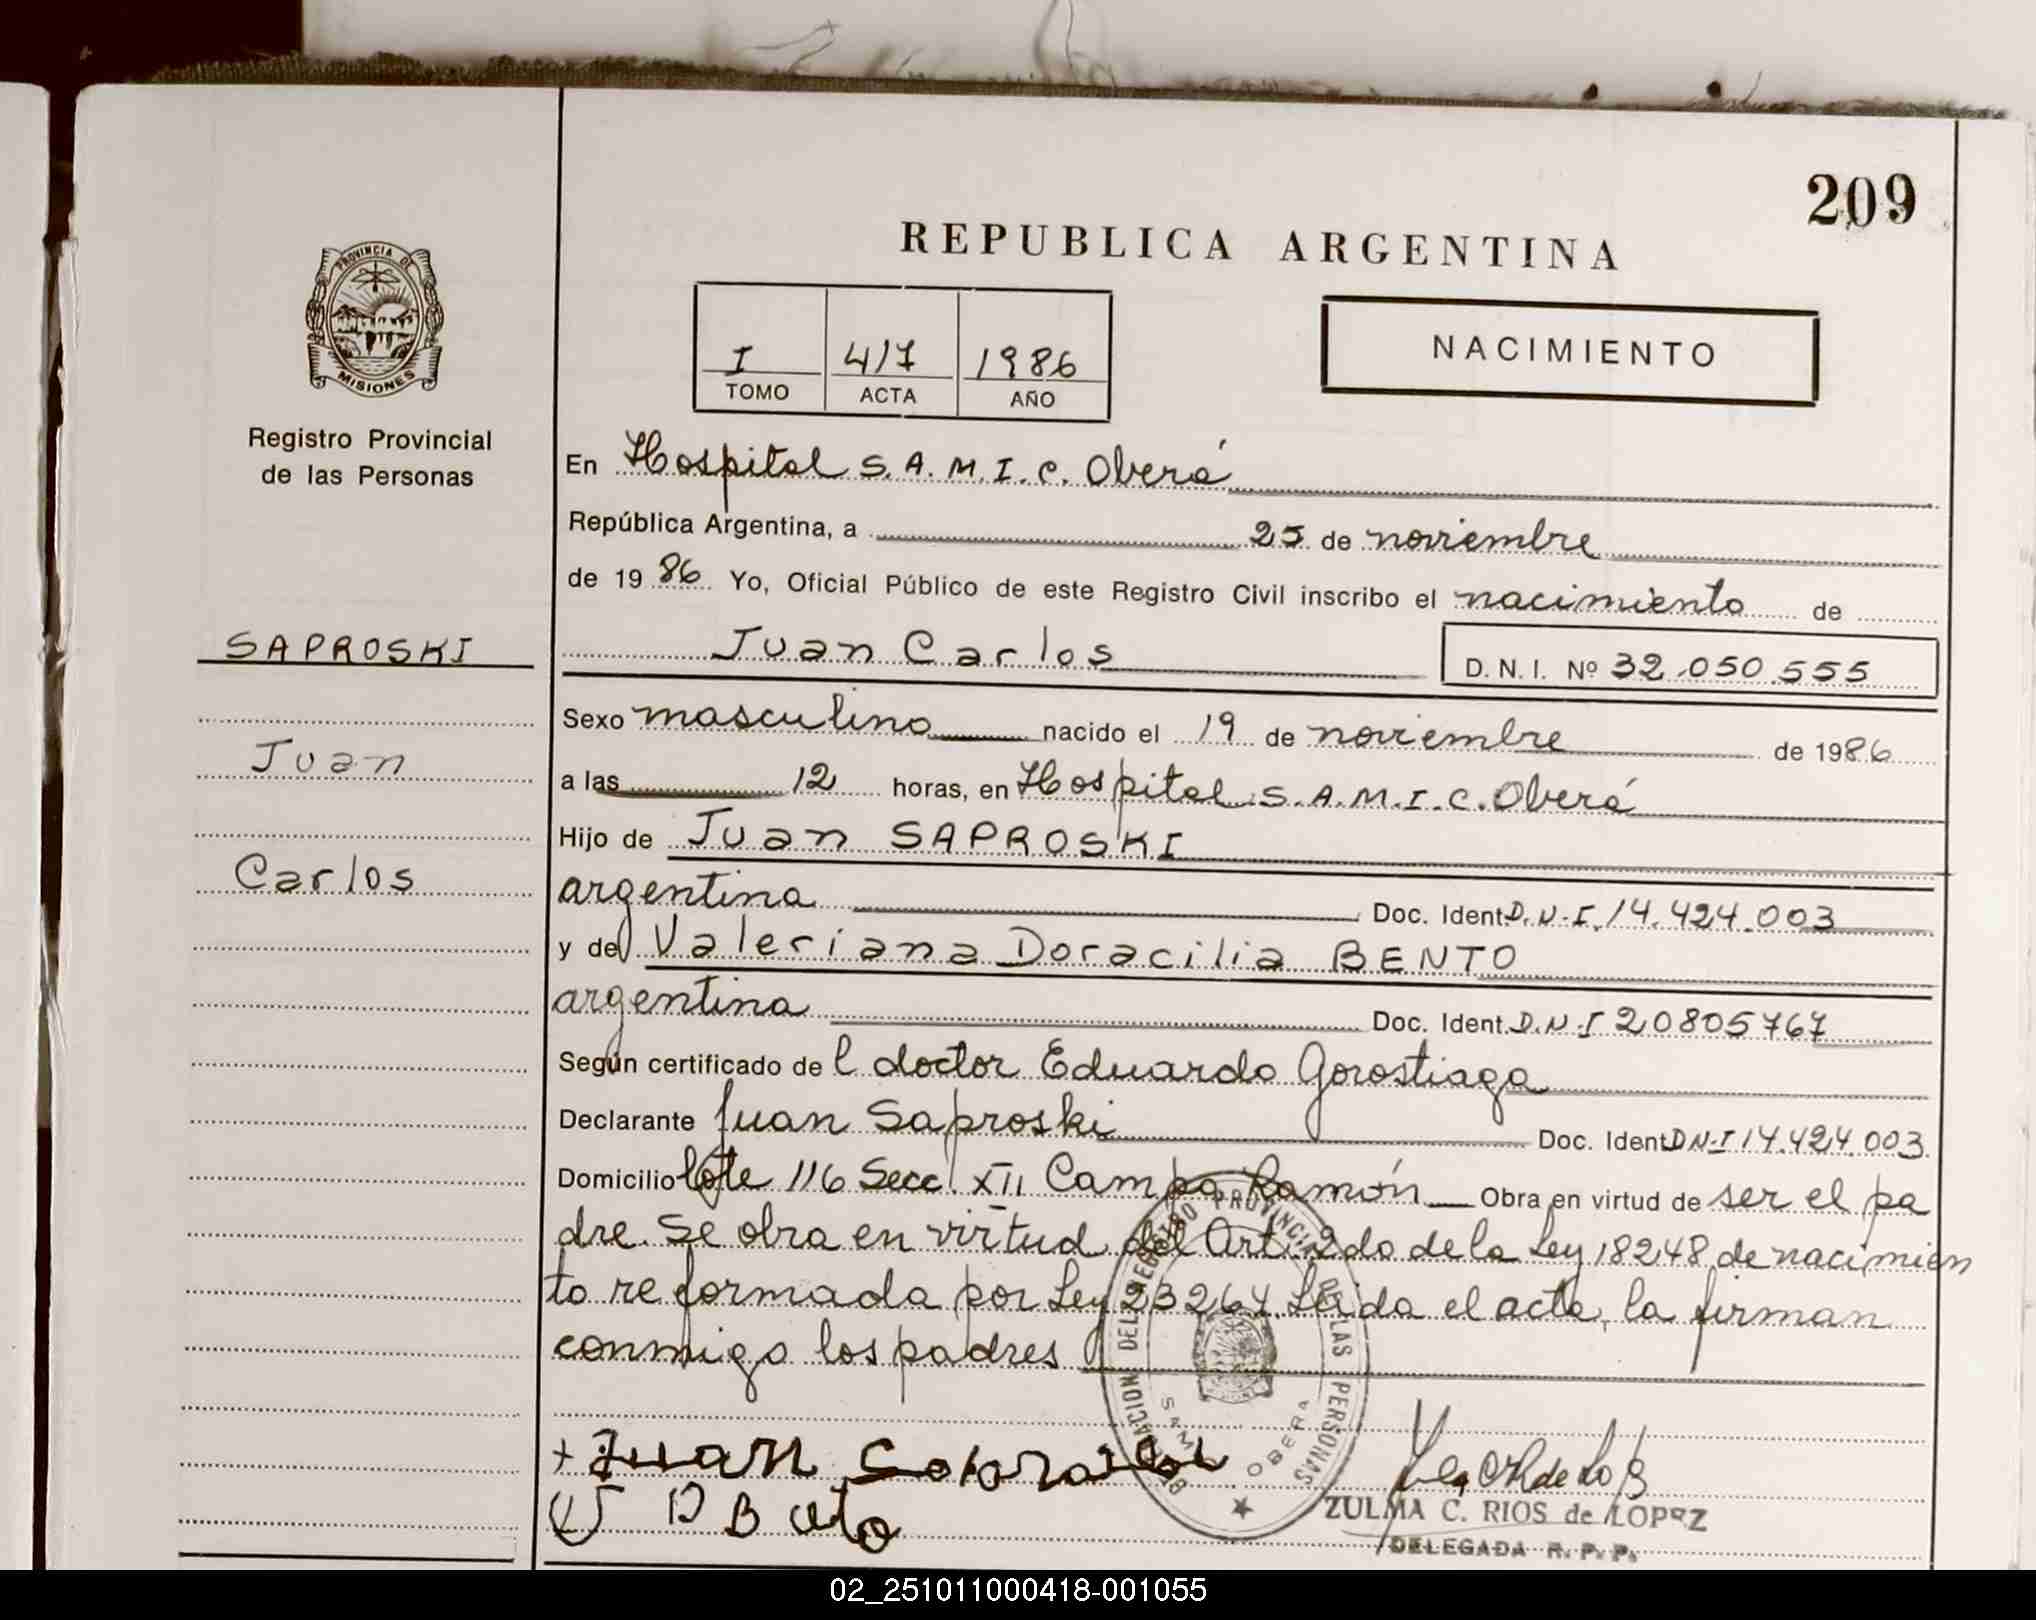 209
REPUBLICA ARGENTINA
PROVINCIA DE
MISIONES
Registro Provincial
de las Personas
I 417 1986
TOMO ACTA AÑO
NACIMIENTO
En Hospital S.A.M.I.C. Oberá
República Argentina, a 25 de noviembre
de 19 86 Yo, Oficial Público de este Registro Civil inscribo el nacimiento de
SAPROSKI
Juan Carlos
D. N. I. Nº 32.050.555
Sexo masculino nacido el 19 de noviembre de 1986
Juan
a las 12 horas, en Hospital S.A.M.I.C. Oberá
Hijo de Juan SAPROSKI
Carlos
argentina Doc. Ident. D.N.I. 14.424.003
y de Valeriana Doracilia BENTO
argentina Doc. Ident. D.N.I 20805767
Según certificado de l doctor Eduardo Gorostiaga
Declarante Juan Saproski Doc. Ident. DN.I 14.424.003
Domicilio lote 116 Secc. XII Campo Ramón Obra en virtud de ser el pa
dre. Se obra en virtud del Art. 2do de la Ley 18248 de nacimien
to reformada por Ley 23264. Leida el acta, la firman
conmigo los padres
DELEGACION DEL REGISTRO PROVINCIAL DE LAS PERSONAS
SAMIC OBERA
Juan
ZULMA C. RIOS de LOPEZ
DELEGADA R. P. P.
02_251011000418-001055